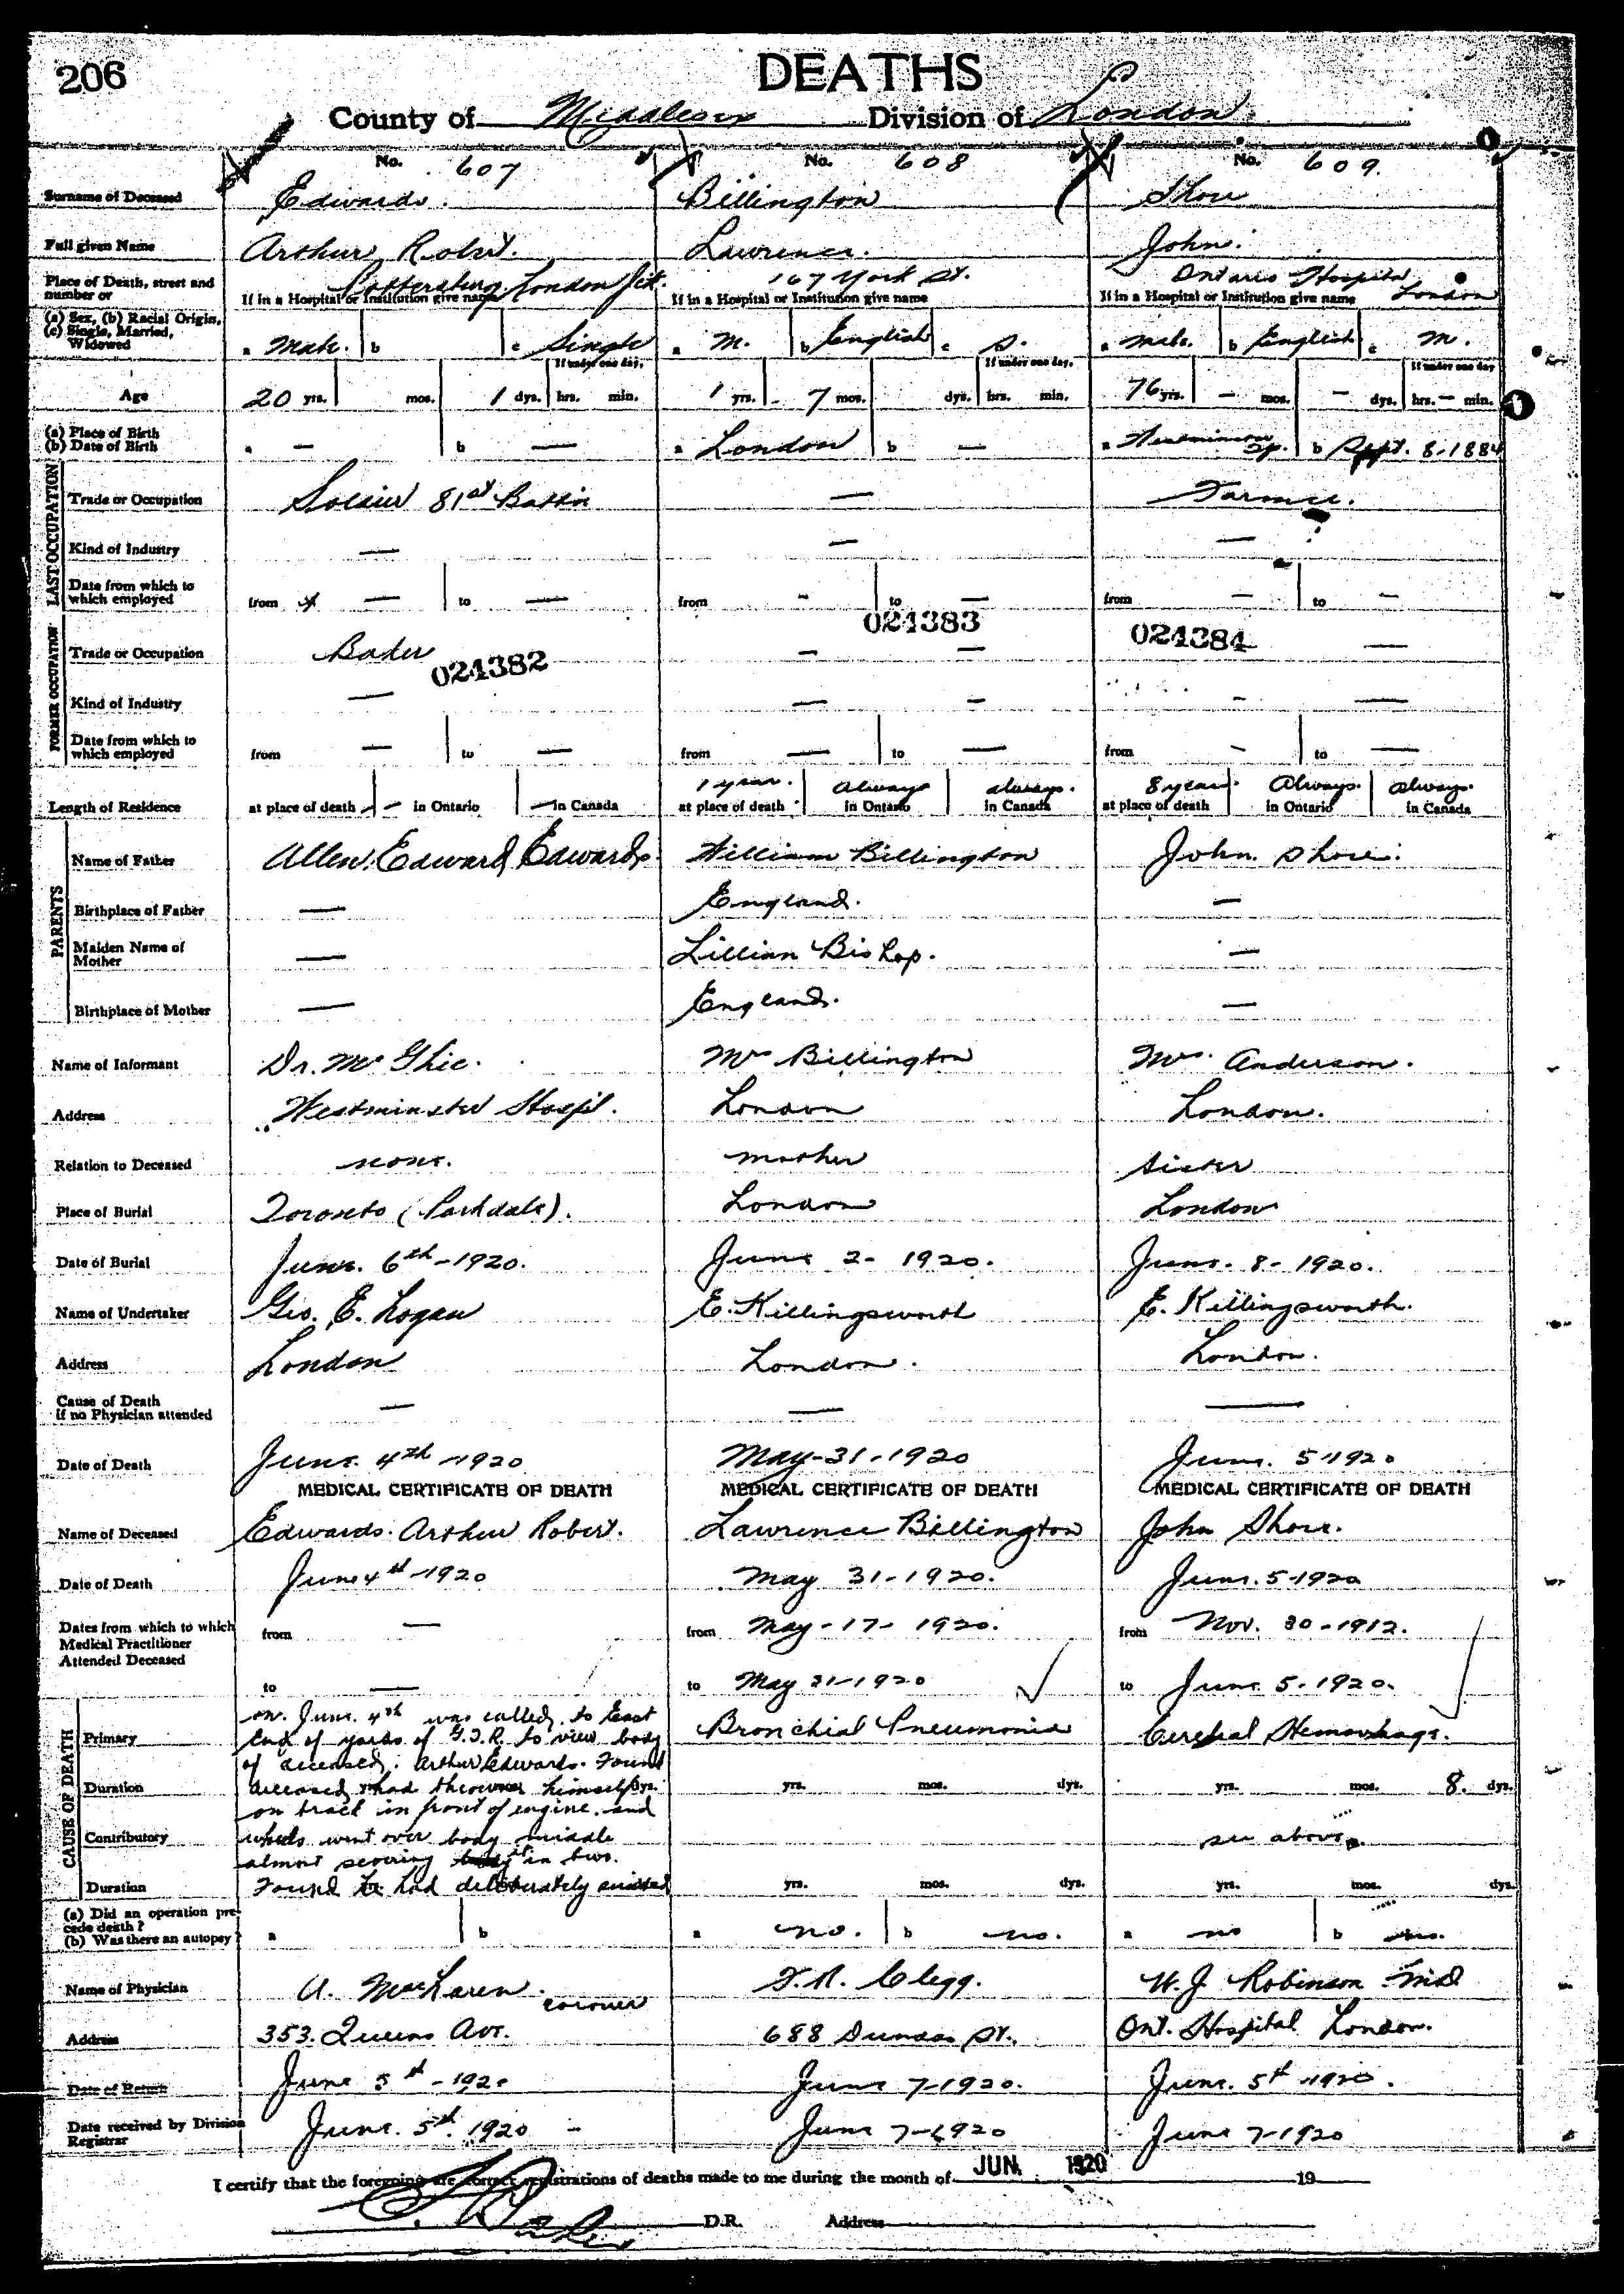 206
DEATHS
County of Middlesex Division of London
No. 607 No. 608 No. 609.
Surname of Deceased Edwards. Billington Shore
Full given Name Arthur Robert. Lawrence. John.
Place of Death, street and number or Pottersburg, London Jct. 167 York St. Ontario Hospital London
If in a Hospital or Institution give name If in a Hospital or Institution give name If in a Hospital or Institution give name
(a) Sex, (b) Racial Origin, (c) Single, Married, Widowed a Male. b c Single a M. b English c S. a male. b English c M.
If under one day, If under one day, If under one day
Age 20 yrs. mos. 1 dys. hrs. min. 1 yrs. - 7 mos. dys. hrs. min. 76 yrs. — mos. — dys. hrs. — min.
(a) Place of Birth (b) Date of Birth a — b — a London b — a Westminster Tp. b Sept. 8-1884
LAST OCCUPATION
Trade or Occupation Soldier 81st Battn — Farmer.
Kind of Industry — — —
Date from which to which employed from — to — from - to — from — to —
024383
FORMER OCCUPATION
Trade or Occupation Baker 024382 — — 024384 —
Kind of Industry — — - - —
Date from which to which employed from — to — from — to — from - to —
Length of Residence at place of death — — in Ontario — in Canada 1 year. at place of death always in Ontario always. in Canada 8 years. at place of death Always. in Ontario always. in Canada
PARENTS
Name of Father Allen Edward Edwards. William Billington John Shore.
Birthplace of Father — England. —
Maiden Name of Mother — Lillian Bishop. —
Birthplace of Mother — England. —
Name of Informant Dr. McGhie. Mrs Billington Mrs. Anderson.
Address Westminster Hospl. London London.
Relation to Deceased none. mother sister
Place of Burial Toronto (Parkdale). London London
Date of Burial June. 6th - 1920. June 2 - 1920. June. 8 - 1920.
Name of Undertaker Geo. E. Logan E. Killingsworth E. Killingsworth.
Address London London. London.
Cause of Death if no Physician attended — — —
Date of Death June. 4th - 1920 May - 31 - 1920 June. 5 - 1920
MEDICAL CERTIFICATE OF DEATH MEDICAL CERTIFICATE OF DEATH MEDICAL CERTIFICATE OF DEATH
Name of Deceased Edwards. Arthur Robert. Lawrence Billington John Shore.
Date of Death June 4th - 1920 May 31 - 1920. June. 5 - 1920
Dates from which to which Medical Practitioner Attended Deceased from — from May - 17 - 1920. from Nov. 30 - 1912.
to — to May 31 - 1920 to June 5 - 1920.
CAUSE OF DEATH
Primary on June. 4th was called to East
End of yards of G.T.R. to view body
of deceased. Arthur Edwards. Found
Bronchial Pneumonia Cerebral Hemorrhage.
Duration deceased had thrown himself dys. yrs. mos. dys. yrs. mos. 8. dys.
on track in front of engine. and
Contributory wheels went over body middle see above.
almost severing it in two.
Duration Found he had deliberately suicided yrs. mos. dys. yrs. mos. dys.
(a) Did an operation precede death? (b) Was there an autopsy? a b a no. b no. a no b no.
Name of Physician A. MacLaren. coroner F.R. Clegg. W.J. Robinson MD
Address 353. Queens Ave. 688 Dundas St. Ont. Hospital London.
Date of Return June 5th - 1920 June 7 - 1920. June. 5th - 1920.
Date received by Division Registrar June. 5th. 1920 - June 7 - 1920 June 7 - 1920
I certify that the foregoing are correct registrations of deaths made to me during the month of JUN. 1920 19
D.R. Address